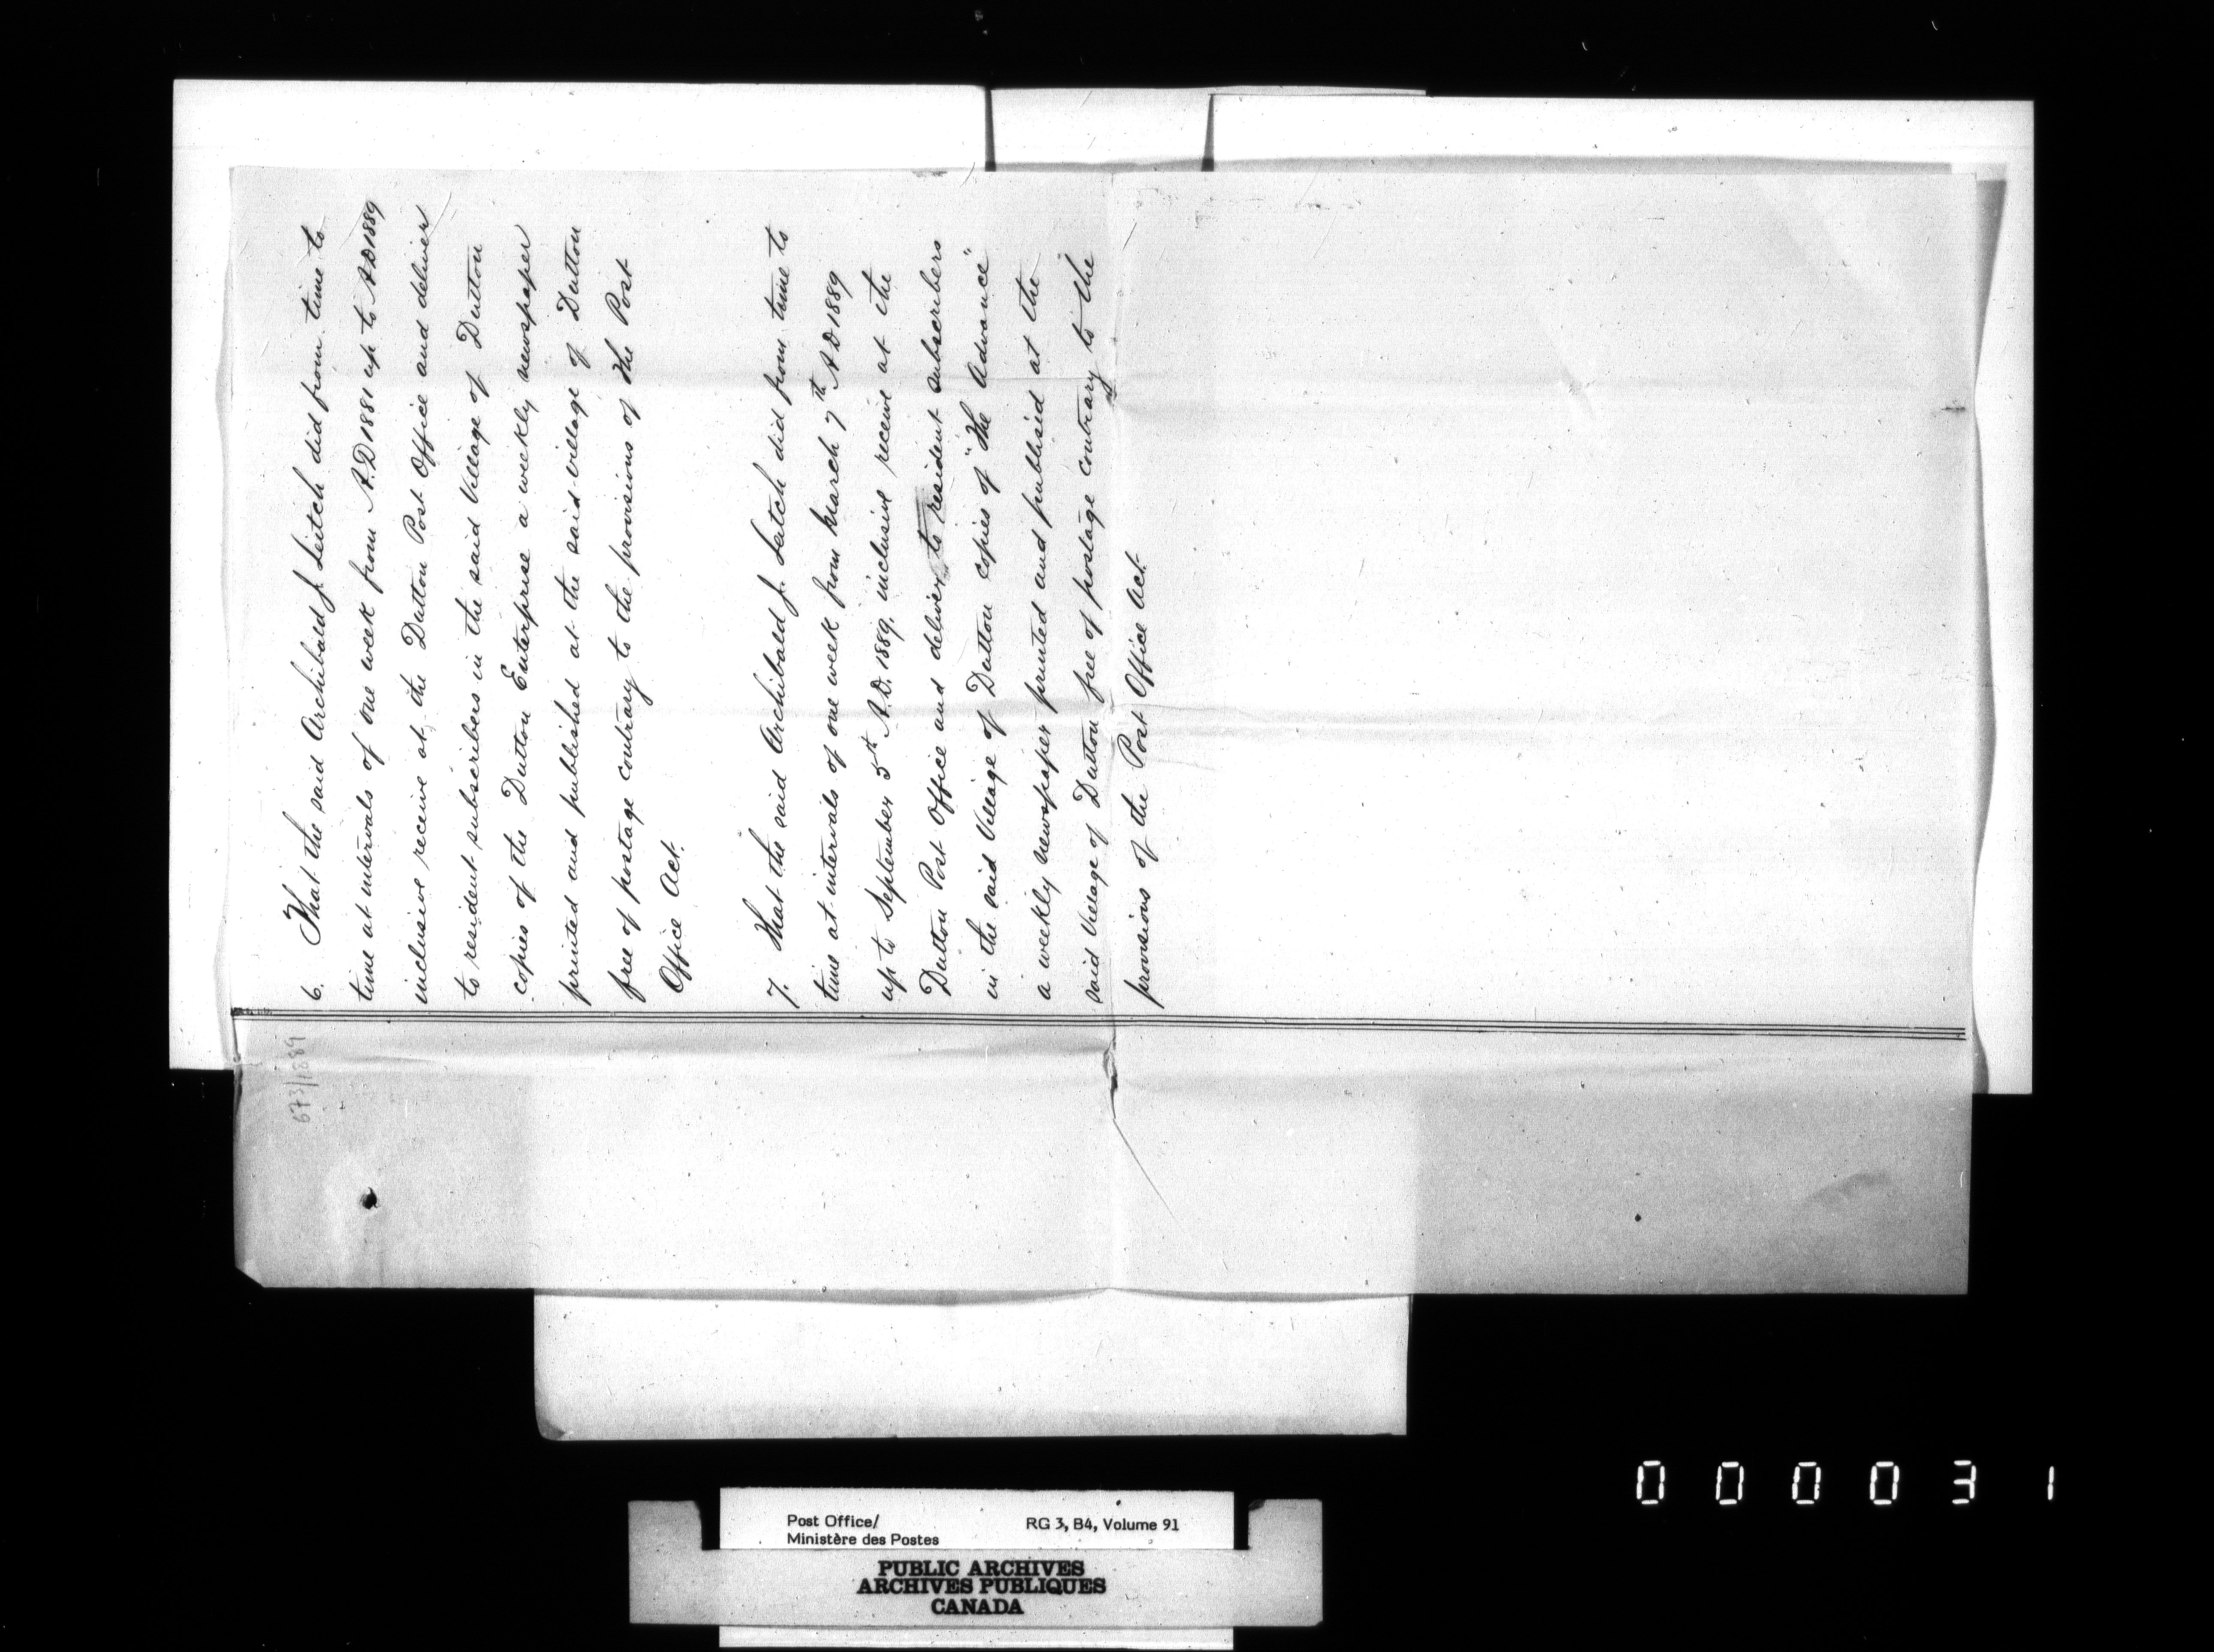 673/1889
6. That the said Archibald J. Leitch did from time to
time at intervals of one week from A.D 1881 up to A D 1889
inclusive receive at the Dutton Post Office and deliver
to resident subscribers in the said Village of Dutton
copies of the Dutton Enterprise a weekly newspaper
printed and published at the said village of Dutton
free of postage contrary to the provisions of the Post
Office Act.
7. That the said Archibald J. Leitch did from time to
time at intervals of one week from March 7th A D 1889
up to September 5th A.D. 1889, inclusive receive at the
Dutton Post Office and deliver to resident subscribers
in the said Village of Dutton copies of "The Advance"
a weekly newspaper printed and publisid at the
said Village of Dutton free of postage contrary to the
provisions of the Post Office Act.
0 0 0 0 3 1
Post Office/ RG 3, B4, Volume 91
Ministère des Postes
PUBLIC ARCHIVES
ARCHIVES PUBLIQUES
CANADA